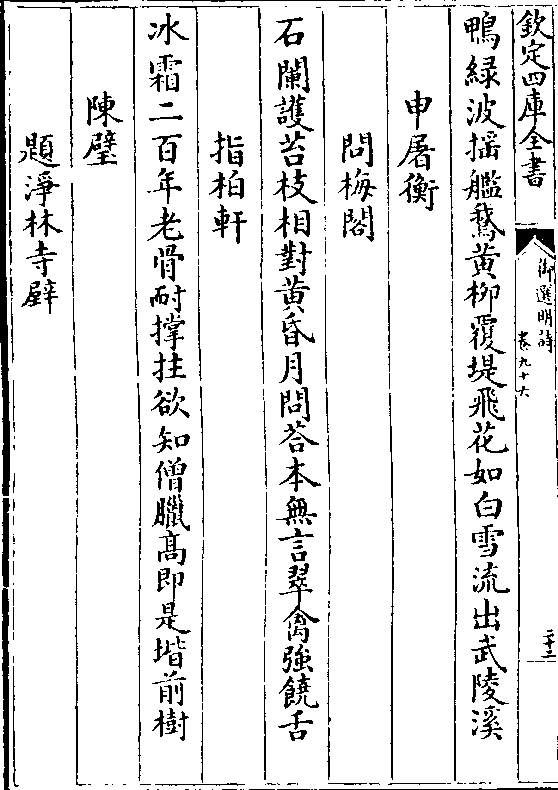 欽定四庫全書
御選明詩
卷九十六
二十二
鴨緑波揺艦鵞黄柳覆堤飛花如白雪流出武陵溪
申屠衡
問梅閣
石闌護苔枝相對黄昏月問荅本無言翠禽強饒舌
指柏軒
冰霜二百年老骨耐撑拄欲知僧臘髙即是堦前樹
陳璧
題淨林寺壁